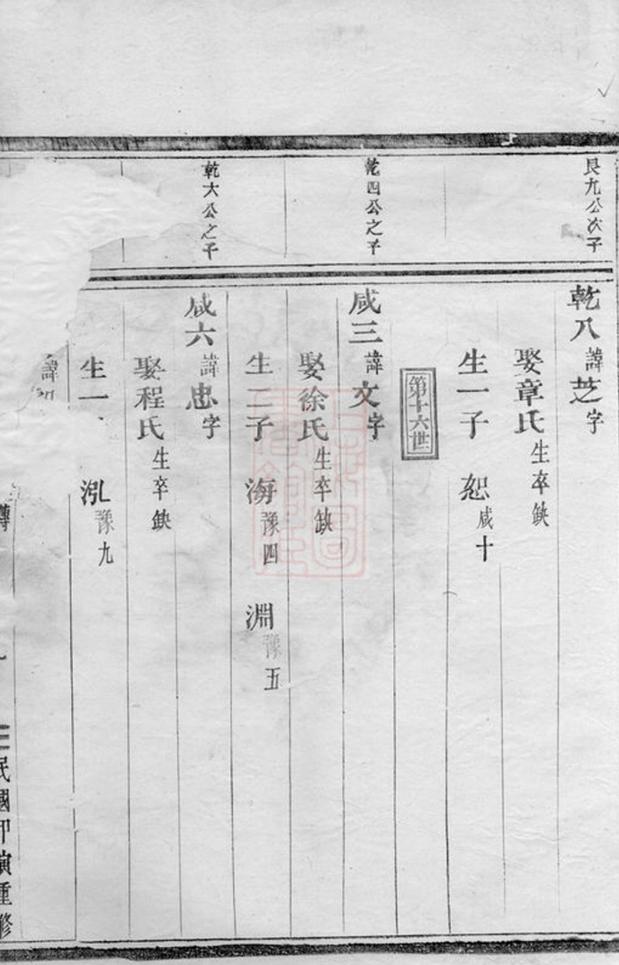 艮九公次子
乾八諱芝字
娶章氏生卒缺
生一子 恕咸十
第十六世
乾四公之子
咸三諱文字
娶徐氏生卒缺
生二子 海豫四 淵豫五
乾大公之子
咸六諱忠字
娶程氏生卒缺
生一 泓豫九
諱
民國甲寅重修